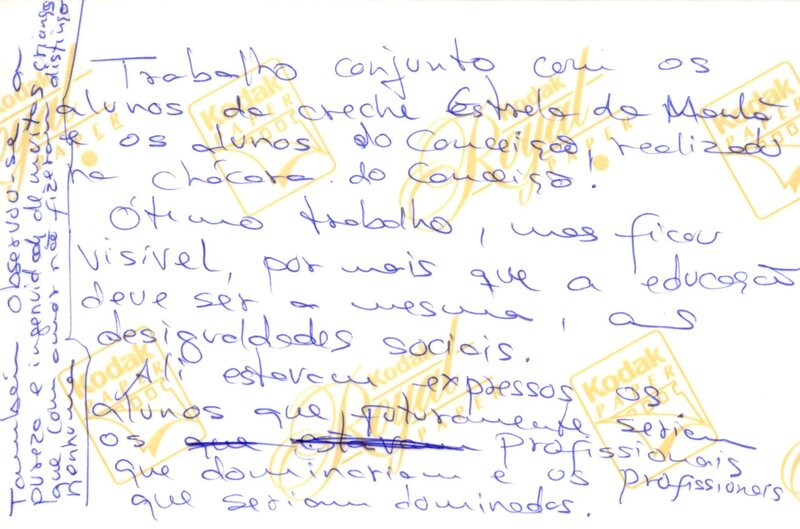 Trabalho conjunto com os
alunos da creche Estrela da Manhã
e os alunos do Conceição, realizado
na chácara do Conceição!
Ótimo trabalho, mas ficou
visível, por mais que a educação
deve ser a mesma, as
desigualdades sociais.
Ali estavam expressos os
alunos que futuramente seriam
os que estavam profissionais
que dominariam e os profissionais
que seriam dominados.
Também observou-se a
pureza e ingenuidade de muitas crianças
que com amor não fizeram distinção
nenhuma
Kodak
PAPER
Royal
PAPER